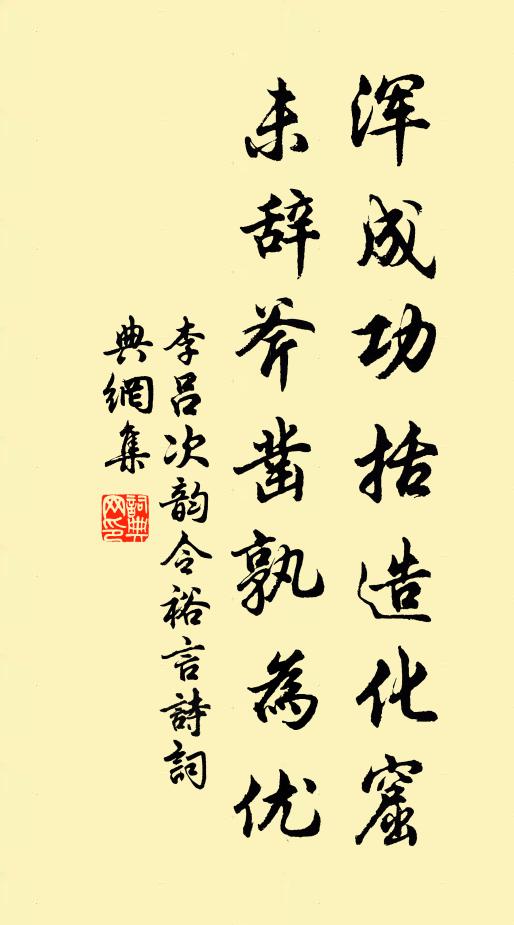 浑成功括造化窟
未辞斧凿孰為优
李吕次韵令裕言詩詞
典網集
詞典网印